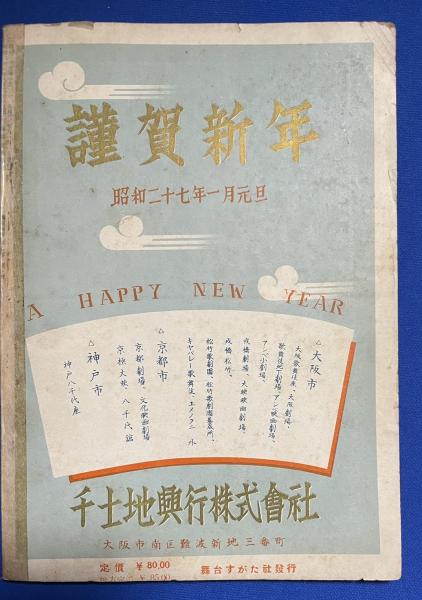 謹賀新年
昭和二十七年一月元旦
A HAPPY NEW YEAR
△大阪市
大阪歌舞伎座、大阪劇場、
歌舞伎地下劇場、アシベ映画劇場、
アシベ小劇場、
戎橋劇場、大映映画劇場、
戎橋松竹、
松竹歌劇團、松竹歌劇團養成所、
キヤバレー歌舞伎、ユメノクニ 外
△京都市
京都劇場、文化映画劇場
京極大映、八千代館
△神戸市
神戸八千代座
千土地興行株式會社
大阪市南区難波新地三番町
定價 ￥80,00
舞台すがた社発行
￥85.00